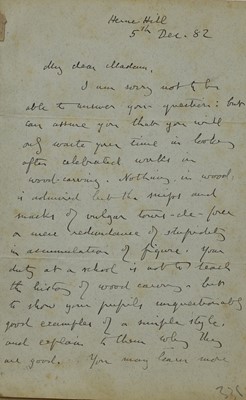 Herne Hill
5th Dec. 82
My dear Madam,
I am sorry not to be
able to answer your question: but
can assure you that you will
only waste your time in looking
after celebrated works in
wood-carving. Nothing in wood
is admired but the snaps and
snacks of vulgar tours-de-force
or mere redundance of stupidity
in accumulation of figure. Your
duty at a school is not to teach
the history of wood carving - but
to show your pupils unquestionably
good examples of a simple style.
and explain to them why they
are good. You may learn more